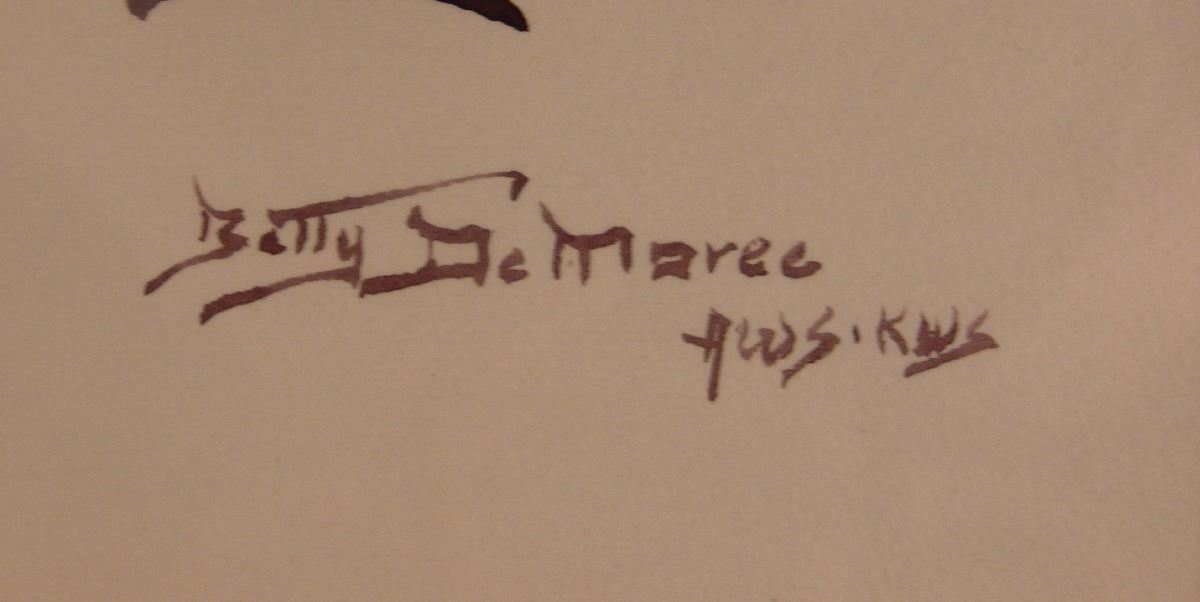 Betty DeMaree
AWS. KWS